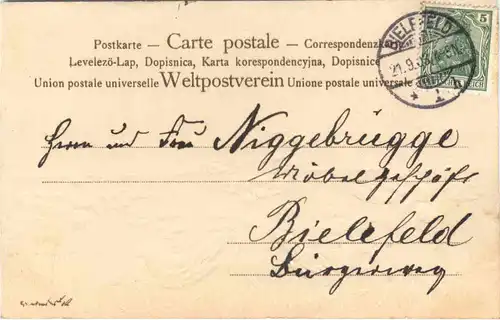 Postkarte – Carte postale – Correspondenzkarte
Levelezö-Lap, Dopisnica, Karta korespondencyjna, Dopisnice
Union postale universelle Weltpostverein Unione postale universale
BIELEFELD
21.9.
1
5
Herrn und Frau Niggebrügge
Möbelgeschäft
Bielefeld
Bürgerweg